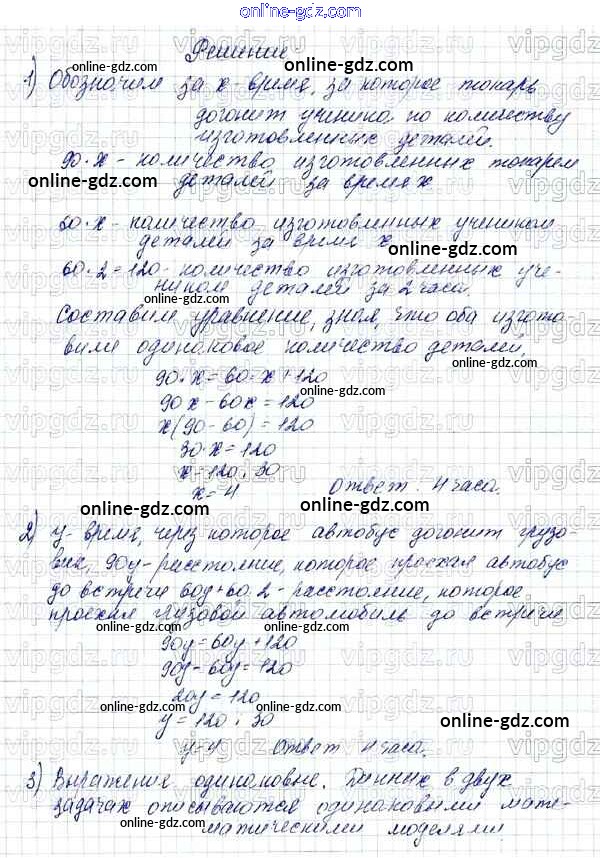 online-gdz.com
Решение
online-gdz.com
1) Обозначим за x - время, за которое токарь
догонит ученика по количеству
изготовленных деталей.
online-gdz.com
90·x - количество изготовленных токарем
деталей за время x
online-gdz.com
60·x - количество изготовленных учеником
деталей за время x
online-gdz.com
60·2=120 - количество изготовленных уче-
ником деталей за 2 часа.
online-gdz.com
Составим уравнение, зная, что оба изгото
вили одинаковое количество деталей.
90·x=60·x+120
online-gdz.com
90x-60x=120
online-gdz.com
x(90-60)=120
30·x=120
online-gdz.com
x=120:30
x=4 Ответ: 4 часа.
online-gdz.com
online-gdz.com
2) y - время, через которое автобус догонит грузо-
вик, 90y - расстояние, которое проехал автобус
до встречи 60y+60·2 - расстояние, которое
проехал грузовой автомобиль до встречи
online-gdz.com
online-gdz.com
90y=60y+120
90y-60y=120
online-gdz.com
30y=120
online-gdz.com
y=120:30
online-gdz.com
y=4 Ответ: 4 часа.
3) Выражение одинаковые. Данных в двух
online-gdz.com
задачах описываются одинаковыми мате-
матическими моделями
online-gdz.com
online-gdz.com